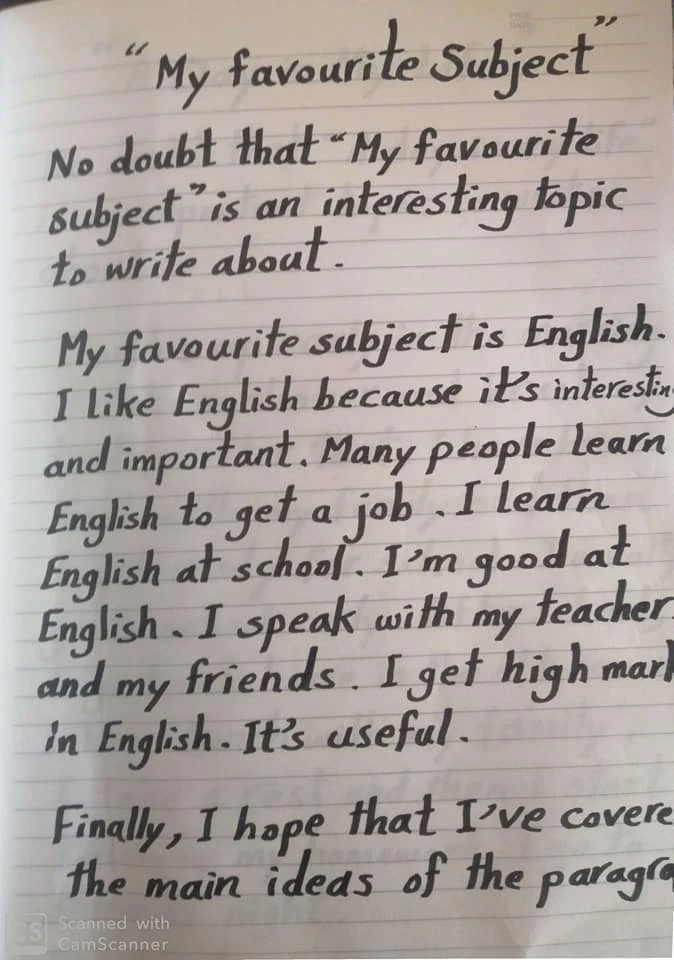 "My favourite Subject"
No doubt that "My favourite
subject" is an interesting topic
to write about.
My favourite subject is English.
I like English because it's interestin
and important. Many people learn
English to get a job. I learn
English at school. I'm good at
English. I speak with my teacher
and my friends. I get high mark
in English. It's useful.
Finally, I hope that I've covere
the main ideas of the paragra
CS Scanned with
CamScanner